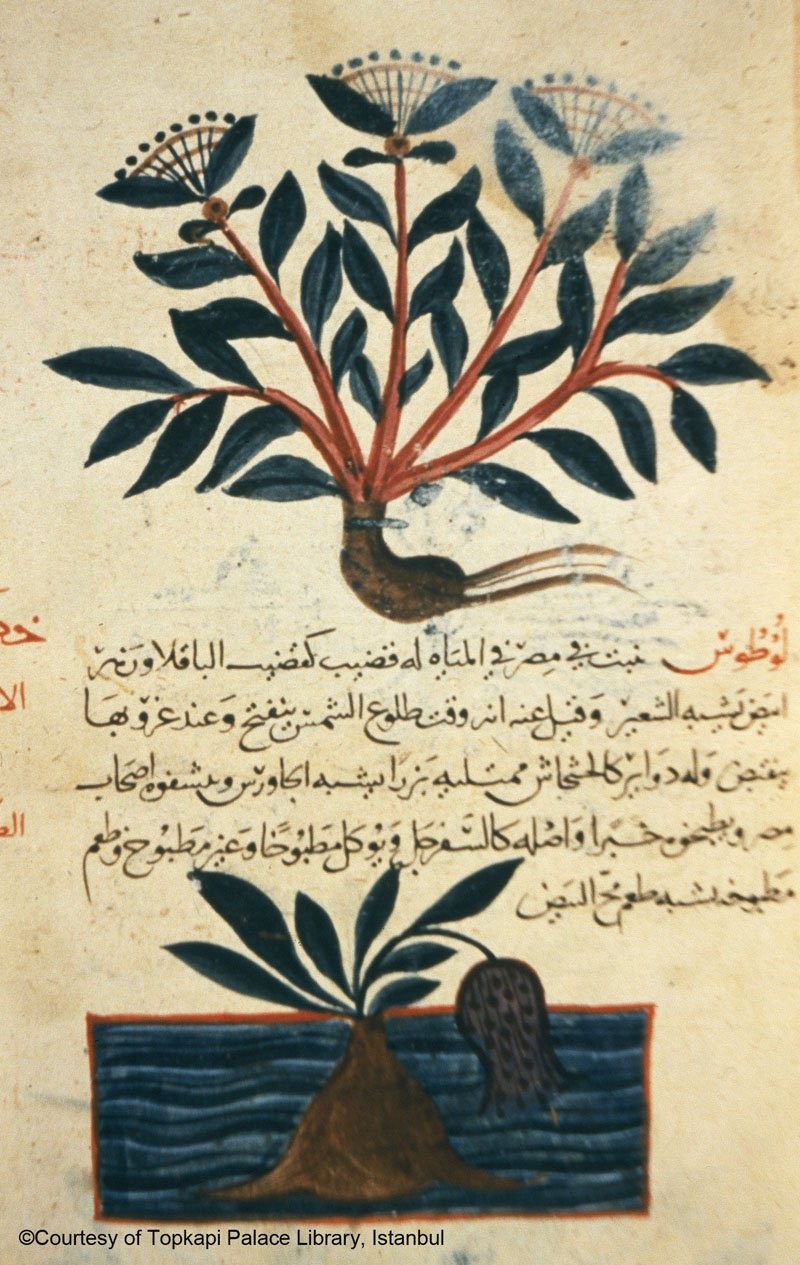 لُوطُوس ينبت في مصر في المياه له قضيب كقضيب الباقلا وزهر
ابيض يشبه الشعير وقيل عنه انه وقت طلوع الشمس ينفتح وعند غروبها
ينقبض وله دواير كالخشخاش ممتليه بزرا يشبه الجاورس اصحاب
مصر ويطبخوه خبزا واصله كالسفرجل ويوكل مطبوخا وغير مطبوخ وطعم
مطبوخه يشبه طعم مح البيض
©Courtesy of Topkapi Palace Library, Istanbul